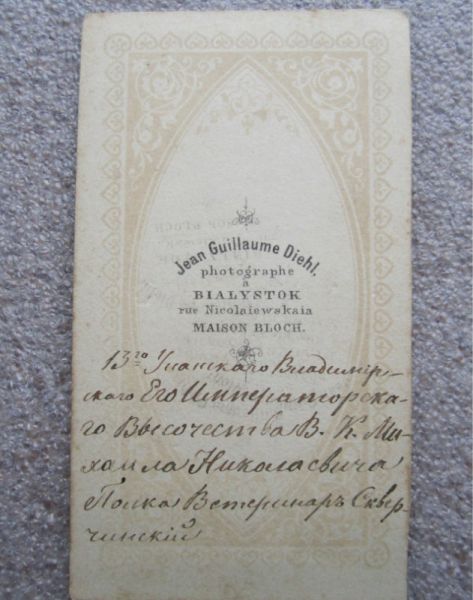 Jean Guillaume Diehl.
photographe
à
BIALYSTOK
rue Nicolaiewskaia
MAISON BLOCH.
13го Уланскаго Владимiр-
скаго Его Императорска-
го Высочества В. К. Ми-
хаила Николаевича
Полка Ветеринаръ Сквер-
чинскiй